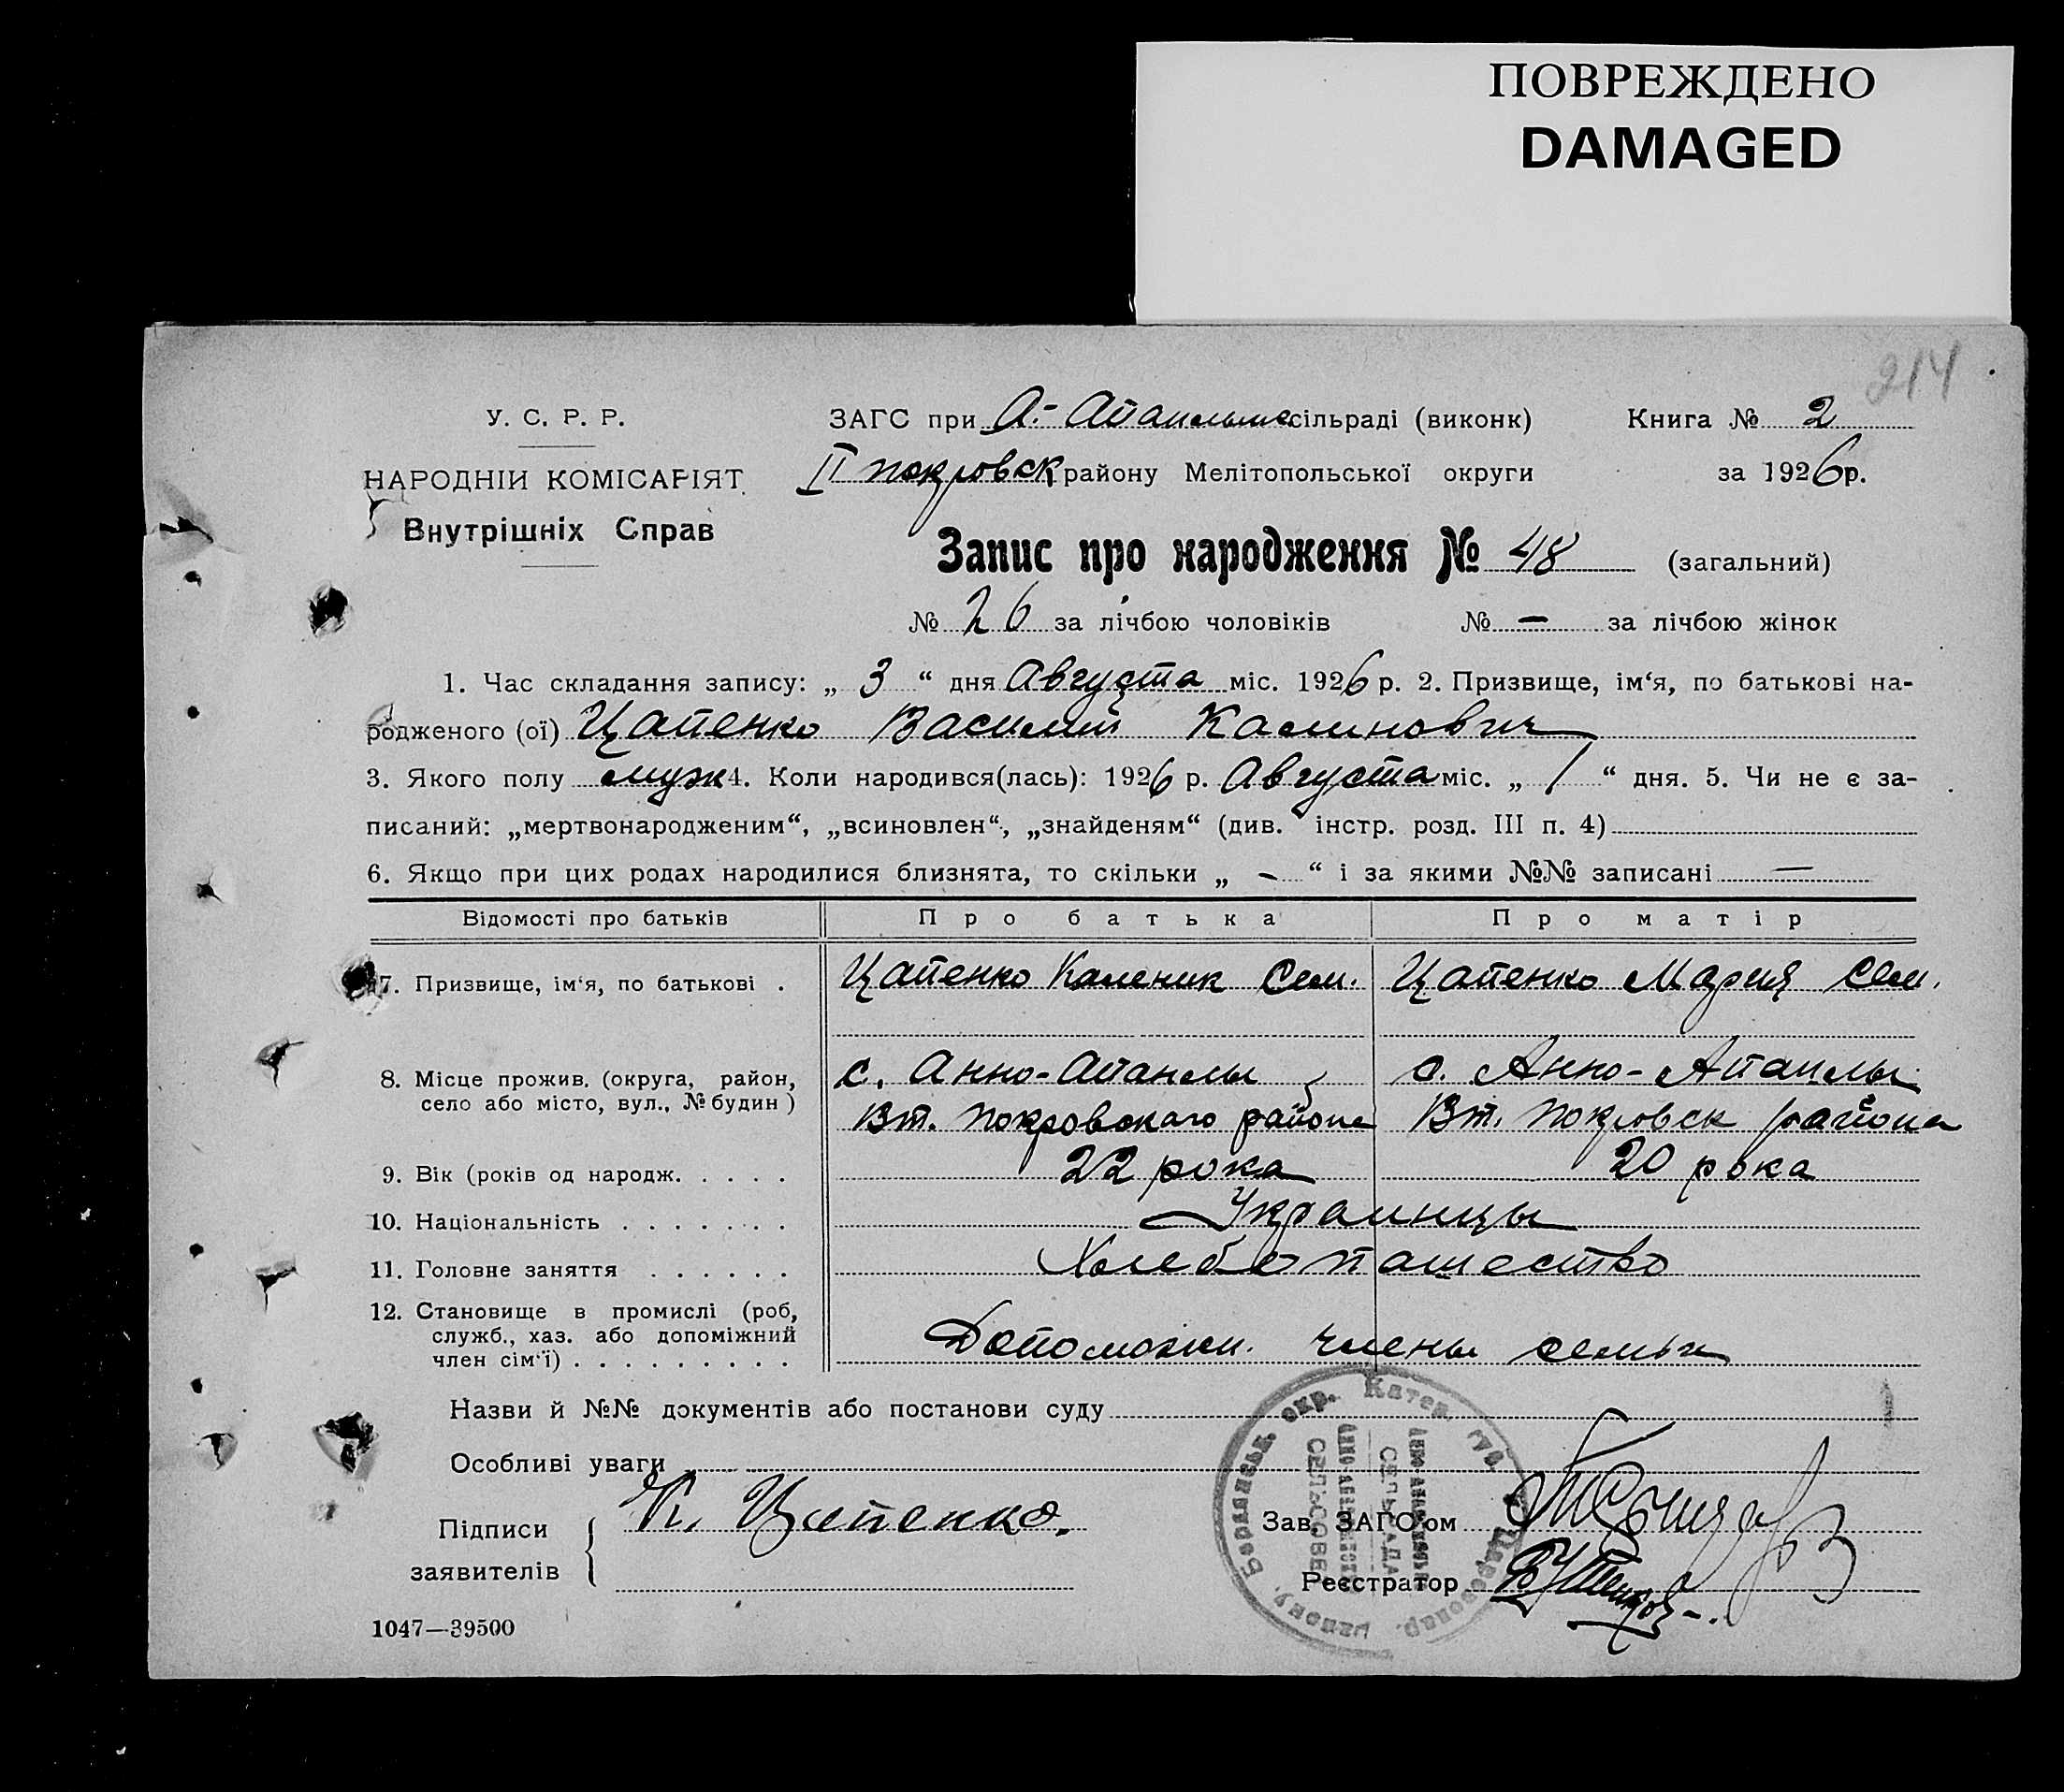 ПОВРЕЖДЕНО
DAMAGED
214
У. С. Р. Р.
НАРОДНІЙ КОМІСАРІЯТ
Внутрішніх Справ
ЗАГС при А.-Апанлын сільраді (виконк)
Книга № 2
II покровск району Мелітопольської округи
за 1926 р.
Запис про народження № 48 (загальний)
№ 26 за лічбою чоловіків № — за лічбою жінок
1. Час складання запису: „ 3 “ дня Августа міс. 1926 р. 2. Призвище, ім‘я, по батькові на-
родженого (ої) Цапенко Василий Калинович
3. Якого полу муж 4. Коли народився(лась): 1926 р. Августа міс. „ 1 “ дня. 5. Чи не є за-
писаний: „мертвонародженим“, „всиновлен“, „знайденям“ (див. інстр. розд. III п. 4)
6. Якщо при цих родах народилися близнята, то скільки „ – “ і за якими №№ записані —
Відомості про батьків Про батька Про матір
7. Призвище, ім‘я, по батькові . Цапенко Каленик Сем. Цапенко Мария Сем.
8. Місце прожив. (округа, район, с. Анно-Апанлы с. Анно-Апанлы
село або місто, вул., № будин) Вт. Покровскаго района Вт. Покровск района
9. Вік (років од народж. . . . . 22 рока 20 рока
10. Національність . . . . . . . Украинцы
11. Головне заняття . . . . . . Хлебопашество
12. Становище в промислі (роб,
служб., хаз. або допоміжний
член сім‘ї) . . . . . . . . . Допоможн. члены семьи
Назви й №№ документів або постанови суду
Особливі уваги
Підписи
заявителів
К. Цапенко.
Зав. ЗАГС‘ом
Реєстратор
Катер. губ. Царевонар. району, Бердянськ. окр.
СЕЛЬРАДА
СЕЛЬСОВЕТ
1047—39500